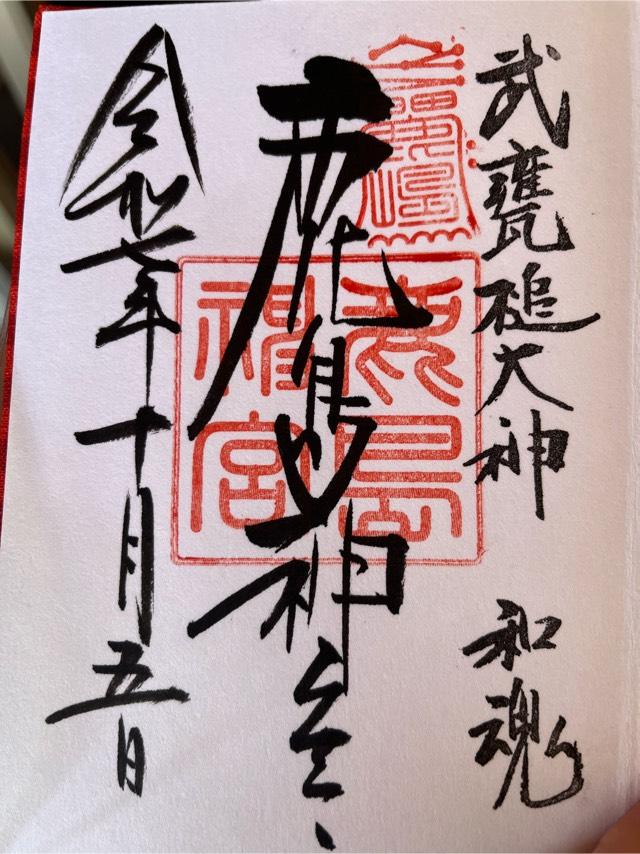 武甕槌大神　和魂
鹿島神宮
鹿島神宮
令和七年十月五日